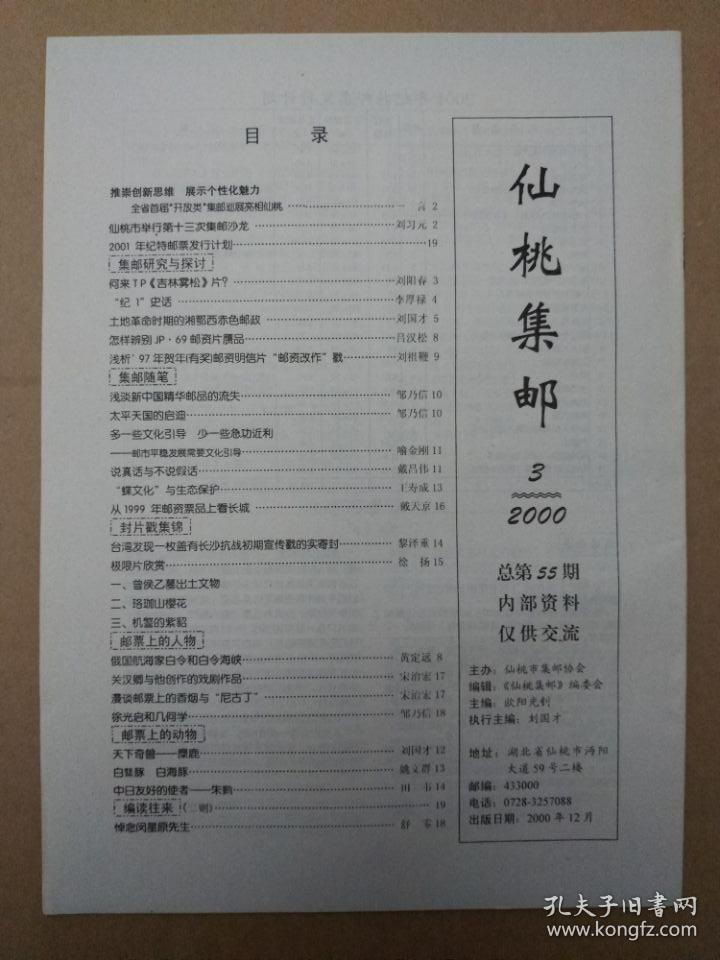 目 录
推崇创新思维 展示个性化魅力
全省首届“开放类”集邮巡展亮相仙桃 ············ 一 言 2
仙桃市举行第十三次集邮沙龙 ············ 刘习元 2
2001 年纪特邮票发行计划 ············ 19
集邮研究与探讨
何来TP《吉林雾松》片? ············ 刘阳春 3
“纪 1”史话 ············ 李厚禄 4
土地革命时期的湘鄂西赤色邮政 ············ 刘国才 5
怎样辨别 JP·69 邮资片赝品 ············ 吕汉松 8
浅析’97 年贺年(有奖)邮资明信片“邮资改作”戳 ············ 刘祖鞭 9
集邮随笔
浅谈新中国精华邮品的流失 ············ 邹乃信 10
太平天国的启迪 ············ 邹乃信 10
多一些文化引导 少一些急功近利
——邮市平稳发展需要文化引导 ············ 喻金刚 11
说真话与不说假话 ············ 戴昌伟 11
“蝶文化”与生态保护 ············ 王寿成 13
从 1999 年邮资票品上看长城 ············ 戴天京 16
封片戳集锦
台湾发现一枚盖有长沙抗战初期宣传戳的实寄封 ············ 黎泽重 14
极限片欣赏 ············ 徐 扬 15
一、曾侯乙墓出土文物
二、珞珈山樱花
三、机警的紫貂
邮票上的人物
俄国航海家白令和白令海峡 ············ 黄定远 8
关汉卿与他创作的戏剧作品 ············ 宋治宏 17
漫谈邮票上的香烟与“尼古丁” ············ 宋治宏 17
徐光启和几何学 ············ 邹乃信 18
邮票上的动物
天下奇兽——麋鹿 ············ 刘国才 12
白鱀豚 白海豚 ············ 姚文群 13
中日友好的使者——朱鹮 ············ 田 韦 14
编读往来(二则) ············ 19
悼念闵星原先生 ············ 舒 零 18
仙桃集邮
3
2000
总第 55 期
内部资料
仅供交流
主办：仙桃市集邮协会
编辑：《仙桃集邮》编委会
主编：欧阳光钊
执行主编：刘国才
地址：湖北省仙桃市沔阳
大道 59 号二楼
邮编：433000
电话：0728-3257088
出版日期：2000 年 12 月
孔夫子旧书网
www.kongfz.com